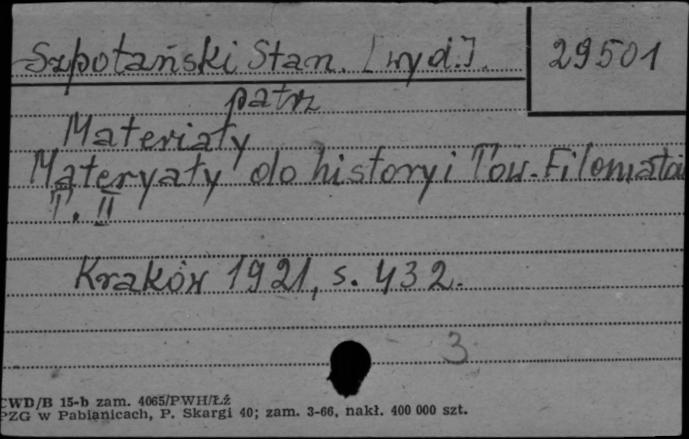 Szpotański Stan. [wyd.].
29501
patrz
Materiały
Materyały do historyi Tow. Filomatów
T. II
Kraków 1921, s. 432.
3
CWD/B 15-b zam. 4065/PWH/Łź
PZG w Pabianicach, P. Skargi 40; zam. 3-66, nakł. 400 000 szt.